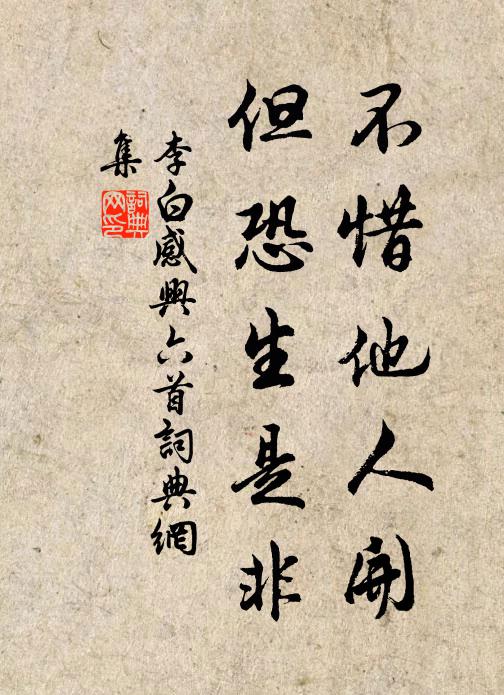 不惜他人開
但恐生是非
李白感興六首詞典網
集
詞典網印